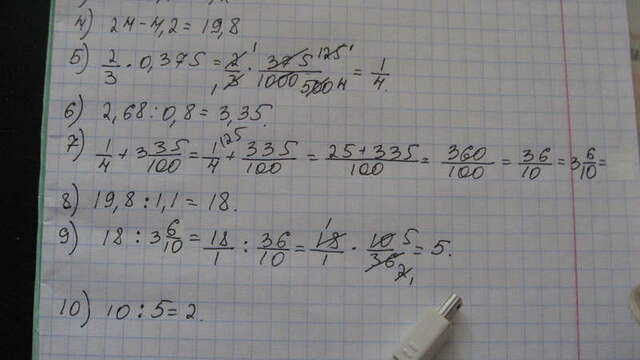 4) 24-4,2=19,8
5) 2/3 · 0,375 = 2/3 · 375/1000 = 1/4.
6) 2,68:0,8=3,35.
7) 1/4 + 3 35/100 = 1/4 + 335/100 = 25+335/100 = 360/100 = 36/10 = 3 6/10 =
8) 19,8:1,1=18.
9) 18 : 3 6/10 = 18/1 : 36/10 = 18/1 · 10/36 = 5.
10) 10:5=2.